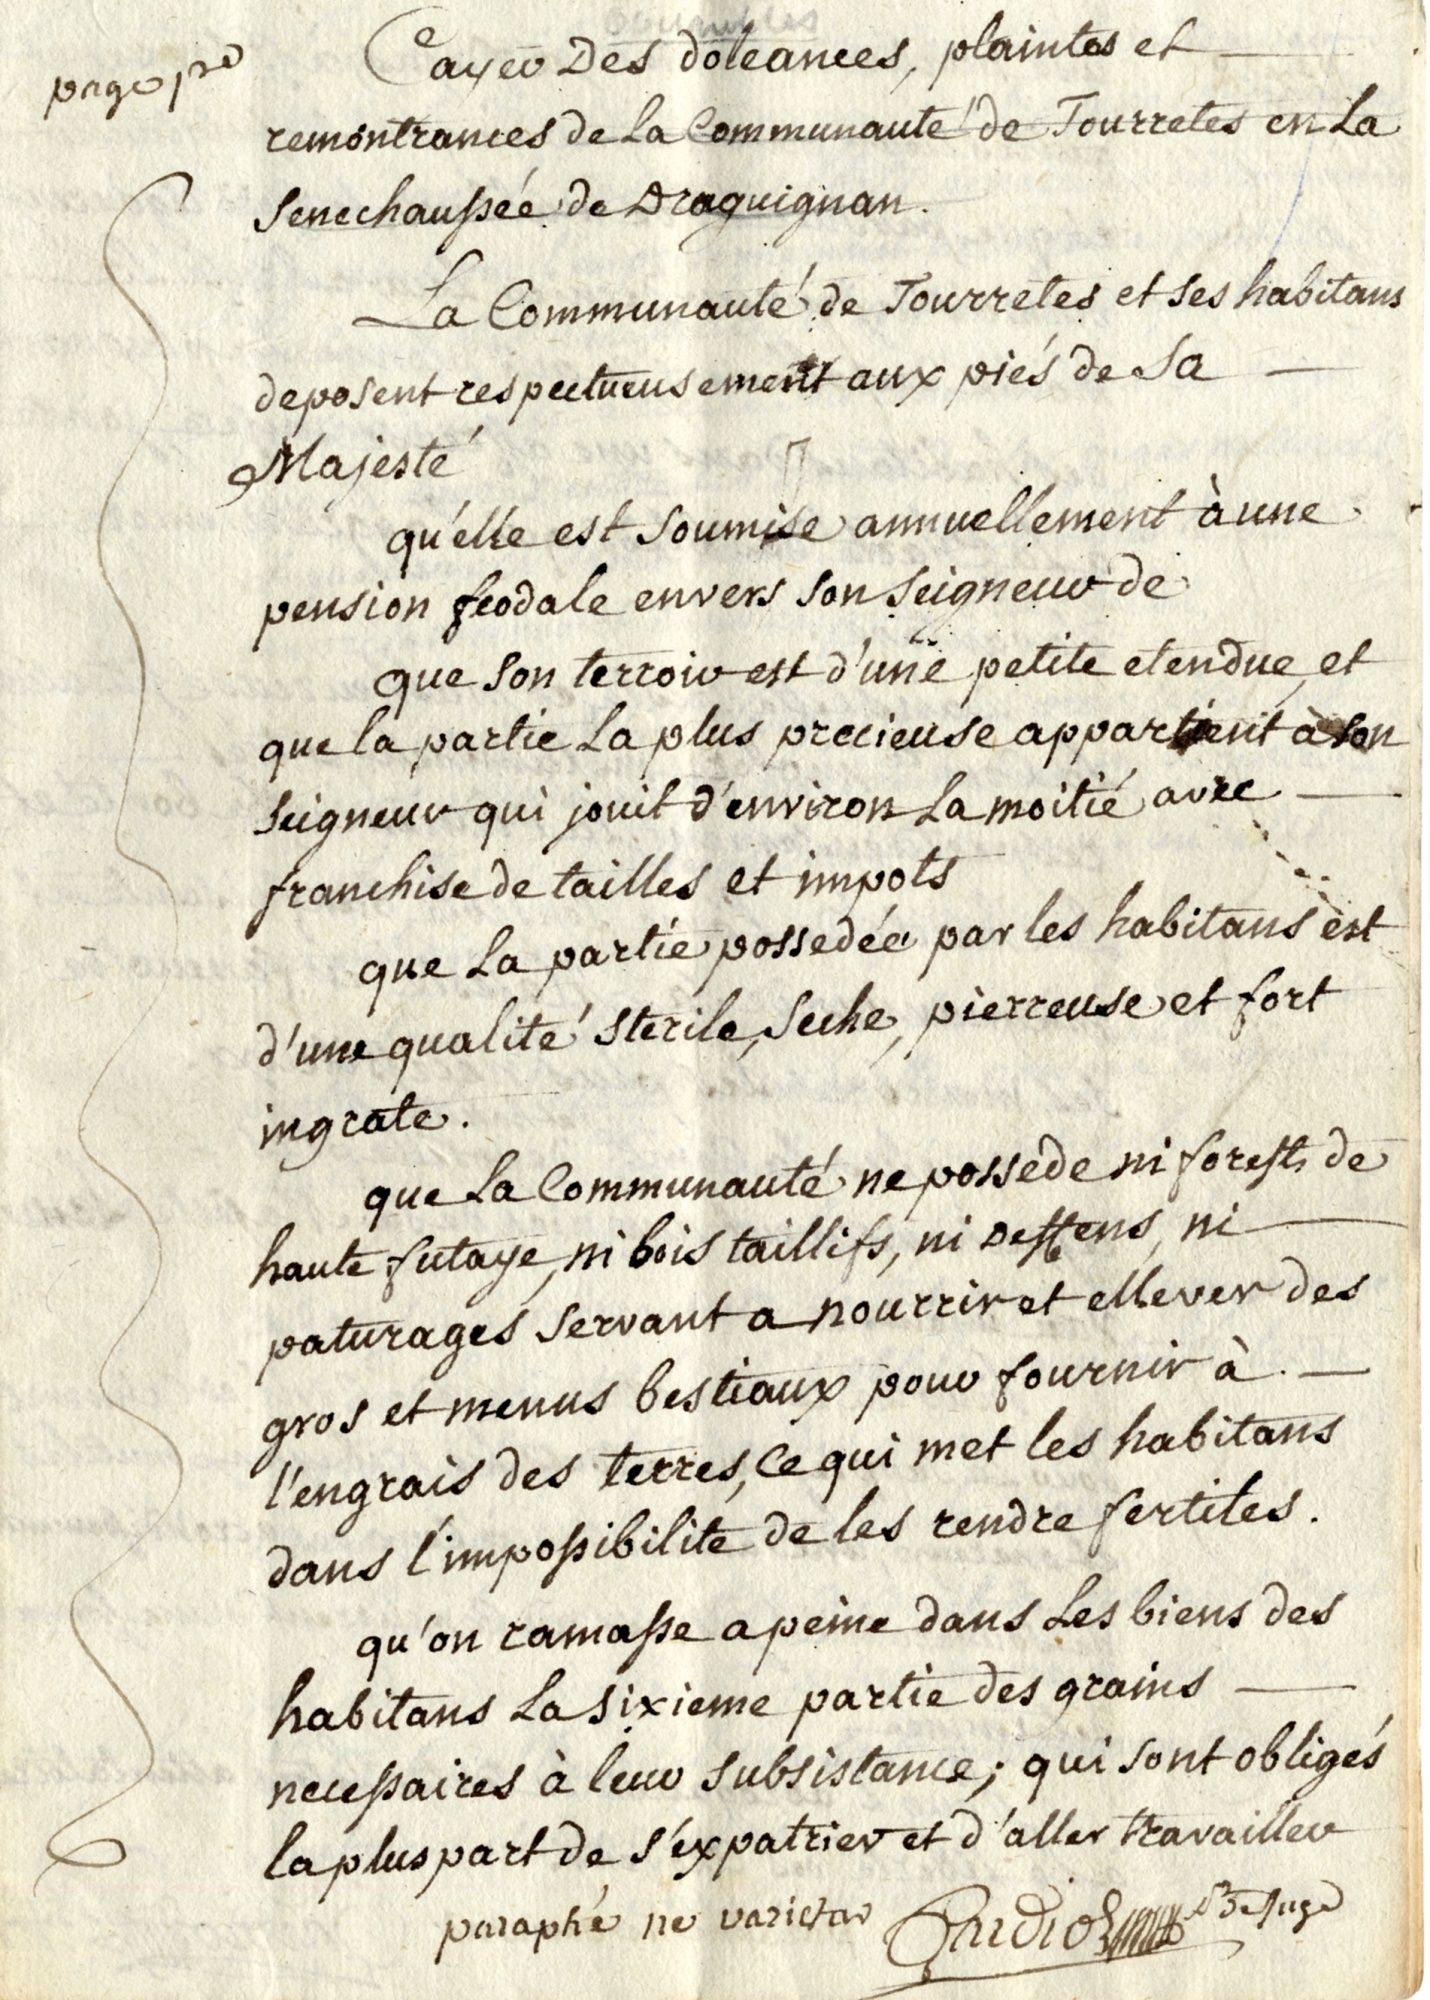 page p.re
Cayer Des doleances, plaintes et
remontrances de La Communauté de Tourretes en La
Senechaussée de Draguignan.
La Communauté de Tourretes et ses habitans
deposent respectueusement aux piés de Sa
Majesté
qu'elle est Soumise annuellement à une
pension feodale envers son Seigneur de
que Son terroir est d'une petite etendue, et
que la partie La plus precieuse appartient à son
Seigneur qui jouit d'environ La moitié avec
franchise de tailles et impots
que La partie possedée par les habitans est
d'une qualité sterile, Seche, pierreuse et fort
ingrate.
que La Communauté ne possede ni forests de
haute futaye, ni bois taillifs, ni Deffens, ni
paturages Servant a nourrir et ellever des
gros et menus bestiaux pour fournir à
l'engrais des terres, Ce qui met les habitans
dans l'impossibilité de les rendre fertiles.
qu'on ramasse a peine dans Les biens des
habitans La sixieme partie des grains
necessaires à leur subsistance; qui sont obligés
la pluspart de s'expatrier et d'aller travailler
paraphé ne varietur
Juge